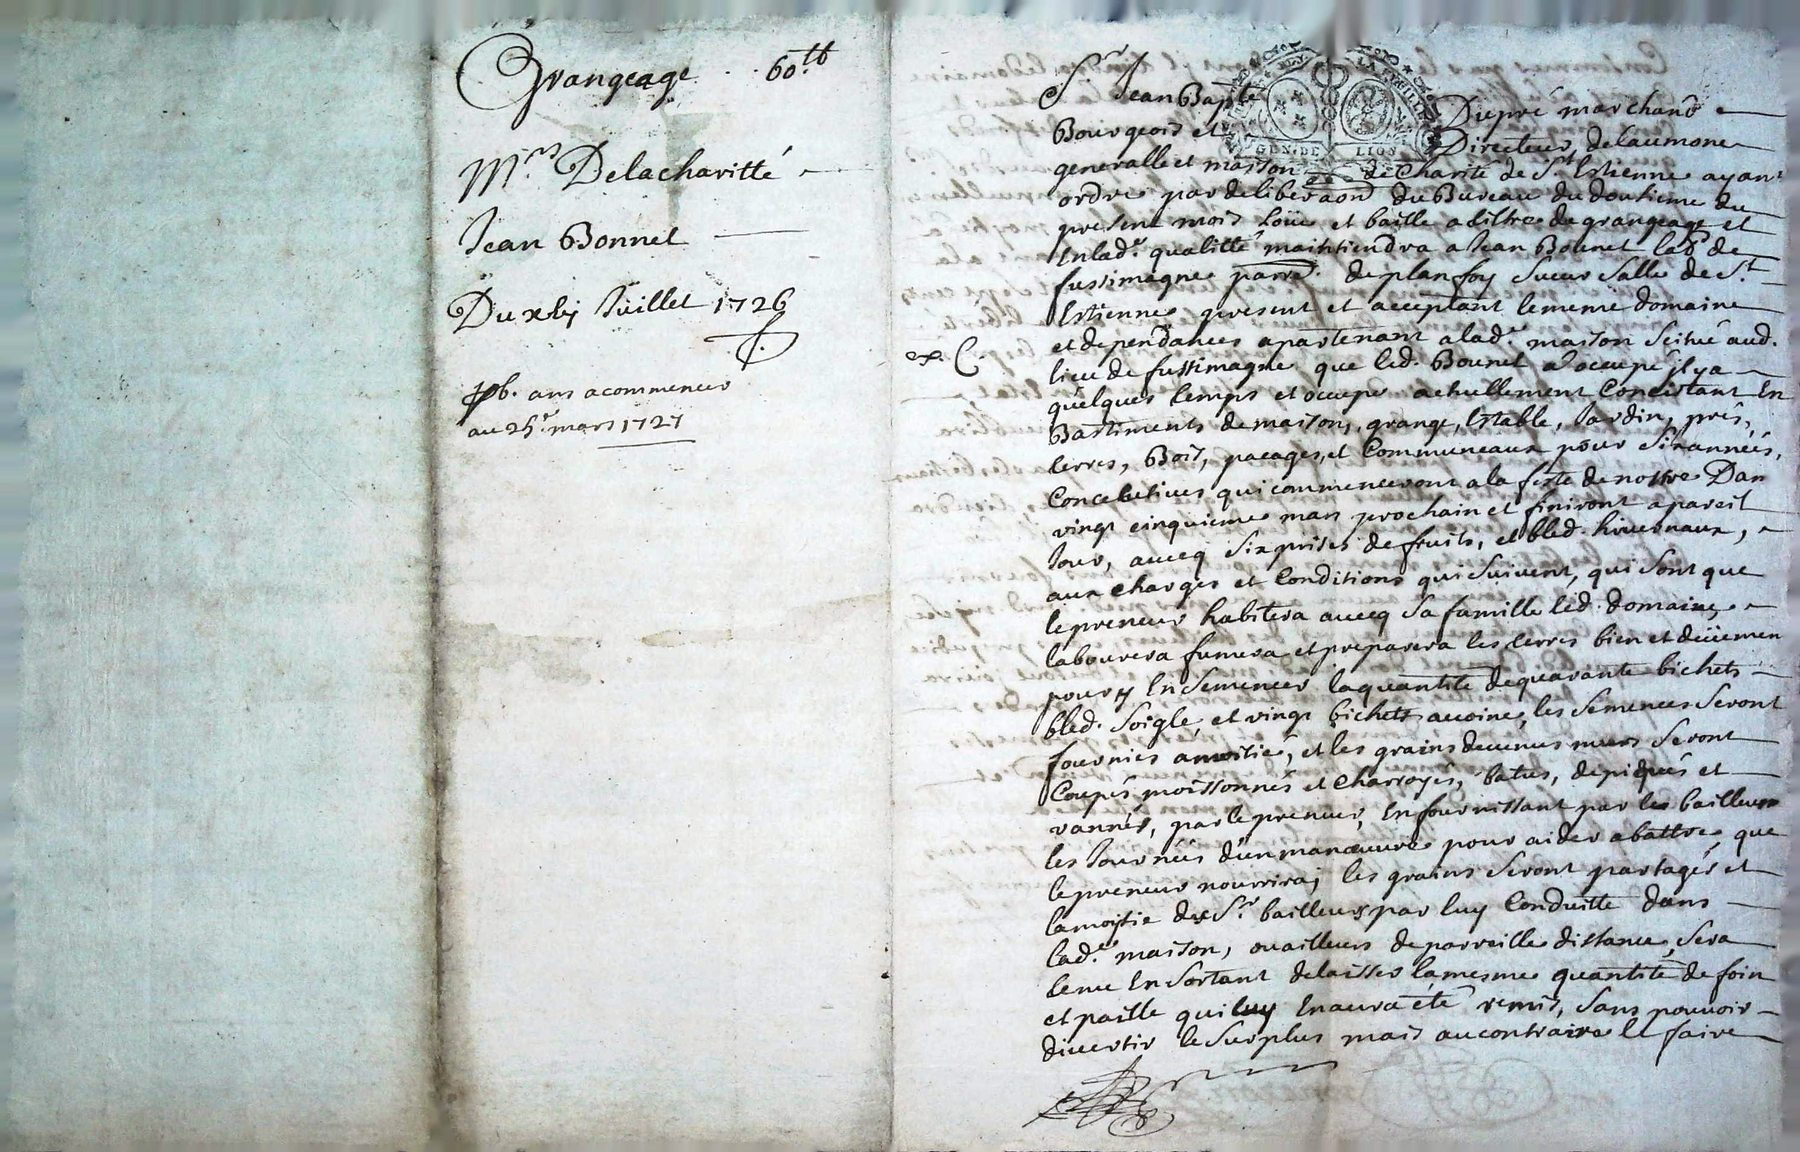 Grangeage . . 60.tt
Mrs Delacharitté
Jean Bonnet
Du xbj Juillet 1726
pb. ans acommencer
au 25e. mars 1727
Sr Jean Bapte Dupré marchand
Bourgeois et Directeur delaumone
generalle et maison de Charité de St. Estienne ayant
GEN. DE LION
ordre par deliberaon du Bureau du douzieme du
present mois loüe et baille a tiltre de grangeage et
Enlad. qualitté maintiendra a Jean Bonnet labr de
fussimagne parre. de planfoy Sueur Salle de St
Estienne present et acceptant lememe domaine
et dependances apartenant a lad. maison Scitué aud.
ex. C.
lieu de fussimagne que led. Bounet a occupé il y a
quelques temps et occupe actuellement Concistant En
Bastiments de maison, grange, Estable, Jardin, prés,
terres, Bois, pacages, et Communeaux pour Six années,
Concecutives qui commenceront a la feste de nostre Dam
vingt cinquieme mars prochain et finiront a pareil
Jour, avecq Six prises de fruits, et bled. hivernaux,
aux charges et Conditions qui Suivent, qui Sont que
lepreneur habitera avecq Sa famille led. domaine,
labourera fumera et preparera les terres bien et düemen
pour y Ensemencer laquantité dequarante bichets
bled. Soigle, et vingt bichets avoine, les Semences Seront
fournies amoitié, et les grains devenus murs Seront
Coupés moissonnés et Charroyés, batus, depiqués et
vannés, par le preneur, En fournissant par les bailleurs
les Journées d'un manœuvre pour aider abattre que
lepreneur nourrira; les grains Seront partagés et
lamoitie des Srs. bailleurs par luy Conduitte dans
lad. maison, ou ailleurs de parreille distance, Sera
tenu En Sortant delaisser lamesme quantité de foin
et paille qui luy Enaura été remis, Sans pouvoir
divertir le Surplus mais aucontraire le faire